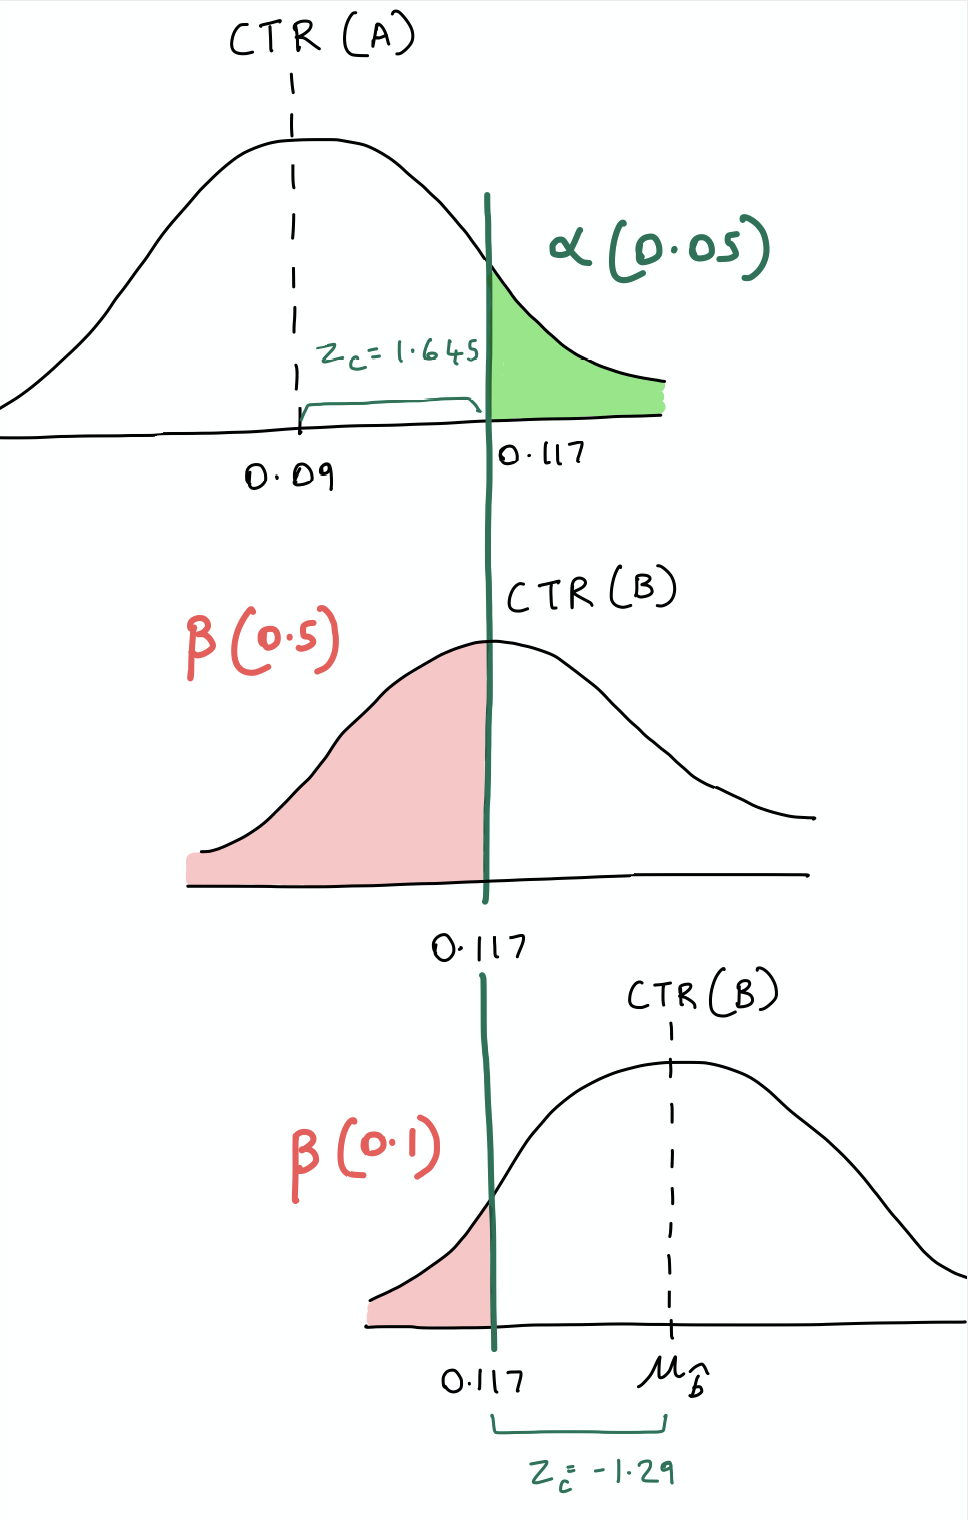 CTR (A)
α (0.05)
Zc = 1.645
0.09
0.117
CTR (B)
β (0.5)
0.117
CTR (B)
β (0.1)
0.117
μb̂
Zc = -1.29